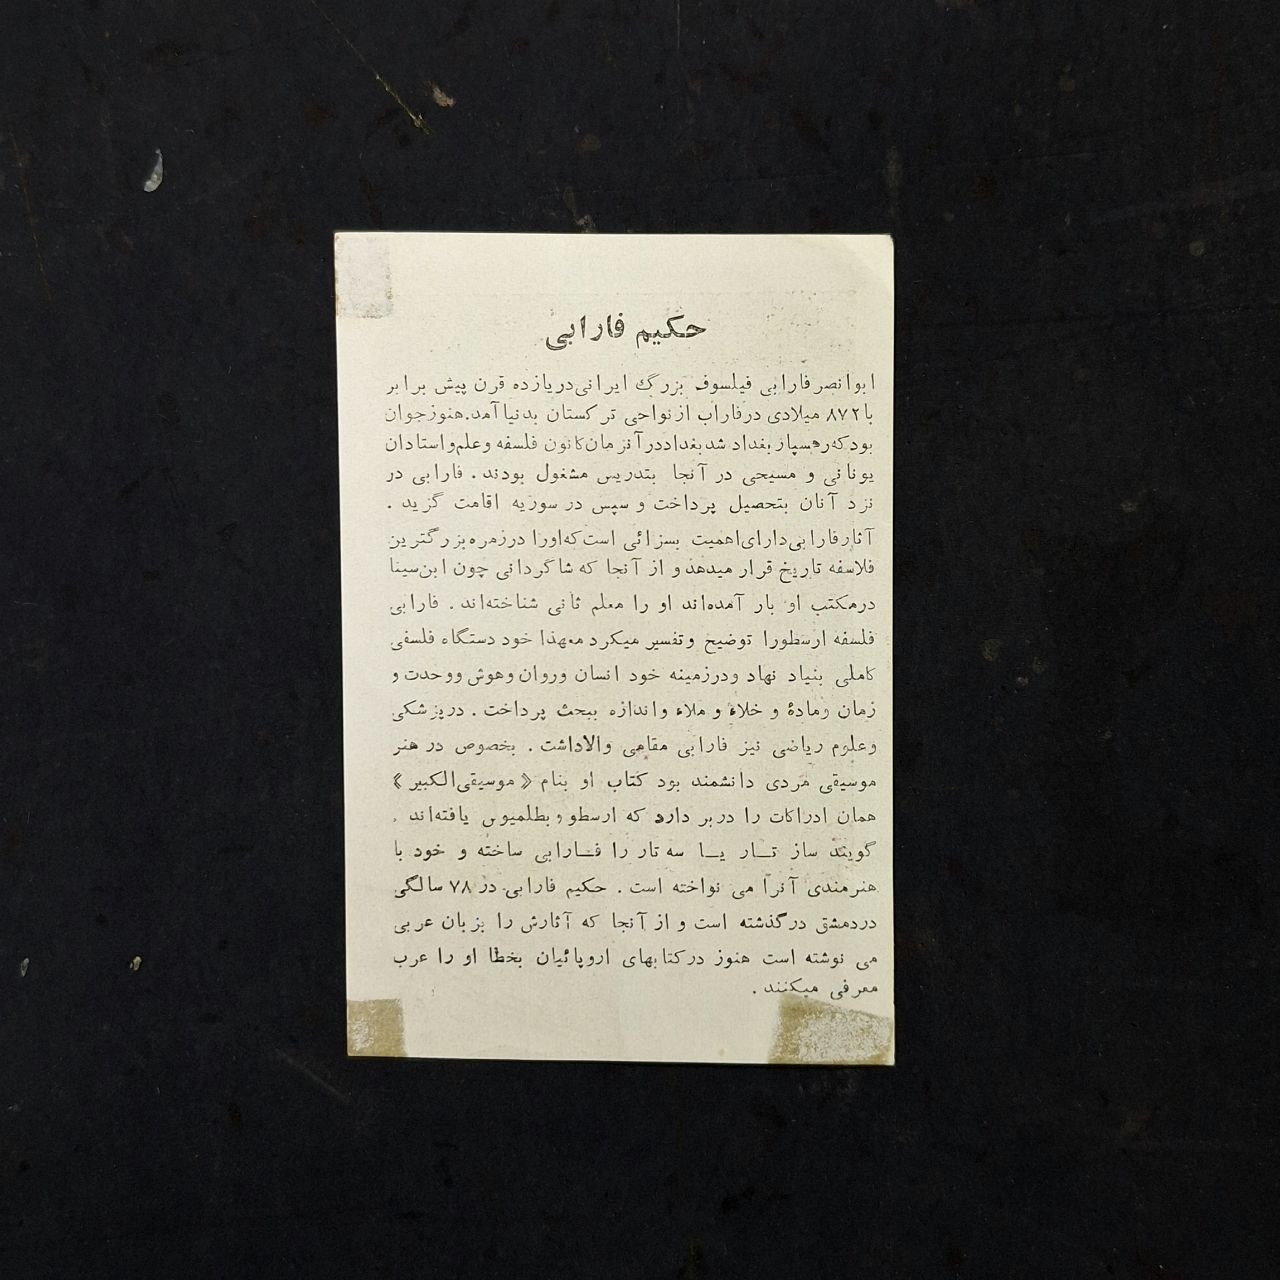 حکیم فارابی
ابوانصر فارابی فیلسوف بزرگ ایرانی در یازده قرن پیش برابر
با ۸۷۲ میلادی در فاراب از نواحی ترکستان بدنیا آمد. هنوز جوان
بود که رهسپار بغداد شد بغداد در آنزمان کانون فلسفه و علم و استادان
یونانی و مسیحی در آنجا بتدریس مشغول بودند . فارابی در
نزد آنان بتحصیل پرداخت و سپس در سوریه اقامت گزید .
آثار فارابی دارای اهمیت بسزائی است که او را در زمره بزرگترین
فلاسفه تاریخ قرار میدهد و از آنجا که شاگردانی چون ابن سینا
در مکتب او بار آمده‌اند او را معلم ثانی شناخته‌اند . فارابی
فلسفه ارسطورا توضیح و تفسیر میکرد معهذا خود دستگاه فلسفی
کاملی بنیاد نهاد و در زمینه خود انسان و روان و هوش و وحدت و
زمان و مادهٔ و خلاء و ملاء و اندازه ببحث پرداخت . در پزشکی
و علوم ریاضی نیز فارابی مقامی والا داشت . بخصوص در هنر
موسیقی مردی دانشمند بود کتاب او بنام «موسیقی الکبیر»
همان ادراکات را در بر دارد که ارسطو و بطلمیوس یافته‌اند .
گویند ساز تــار یــا سه تار را فــارابی ساخته و خود با
هنرمندی آنرا می نواخته است . حکیم فارابی در ۷۸ سالگی
در دمشق در گذشته است و از آنجا که آثارش را بزبان عربی
می نوشته است هنوز در کتابهای اروپائیان بخطا او را عرب
معرفی میکنند .